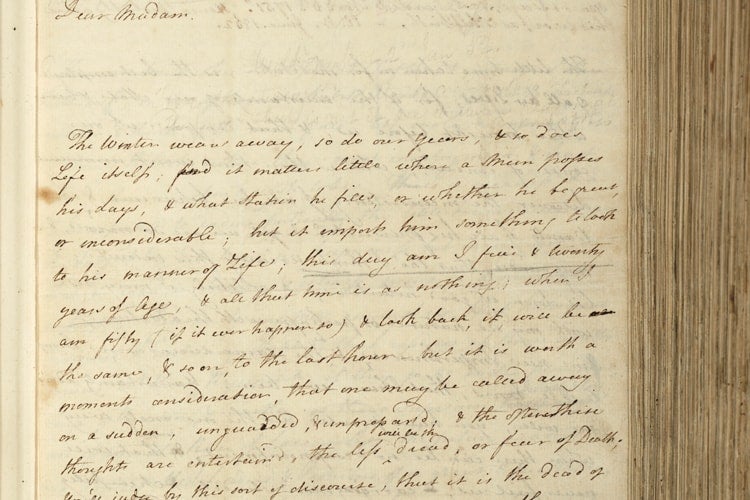 Dear Madam.
The Winter wears away, so do our Years, & so does
Life itself; and it matters little where a Man passes
his days, & what station he fills, or whether he be great,
or inconsiderable; but it imports him something to look
to his manner of Life; this day am I five & twenty
years of Age, & all that time is as nothing; when I
am fifty (if it ever happen so) & look back, it will be
the same, & so on, to the last hour - but it is worth a
moments consideration, that one may be called away
on a sudden, unguarded, & unprepared; & the oftener these
will be the
thoughts are entertain'd, the less dread, or fear of Death;
by this sort of discourse, that it is the dead of